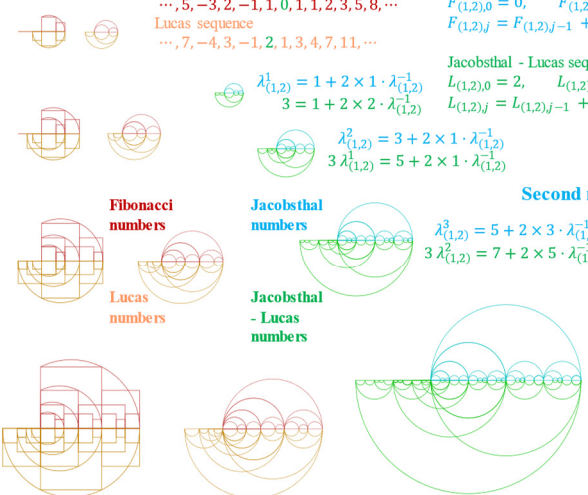 ⋯, 5, −3, 2, −1, 1, 0, 1, 1, 2, 3, 5, 8, ⋯
Lucas sequence
⋯, 7, −4, 3, −1, 2, 1, 3, 4, 7, 11, ⋯
F(1,2),0 = 0, F(1,2
F(1,2),j = F(1,2),j−1 +
Jacobsthal - Lucas seq
L(1,2),0 = 2, L(1,2
L(1,2),j = L(1,2),j−1 +
λ¹(1,2) = 1 + 2 × 1 · λ⁻¹(1,2)
3 = 1 + 2 × 2 · λ⁻¹(1,2)
λ²(1,2) = 3 + 2 × 1 · λ⁻¹(1,2)
3 λ¹(1,2) = 5 + 2 × 1 · λ⁻¹(1,2)
Second
λ³(1,2) = 5 + 2 × 3 · λ⁻¹(1,
3 λ²(1,2) = 7 + 2 × 5 · λ⁻¹(1
Fibonacci
numbers
Jacobsthal
numbers
Lucas
numbers
Jacobsthal
- Lucas
numbers